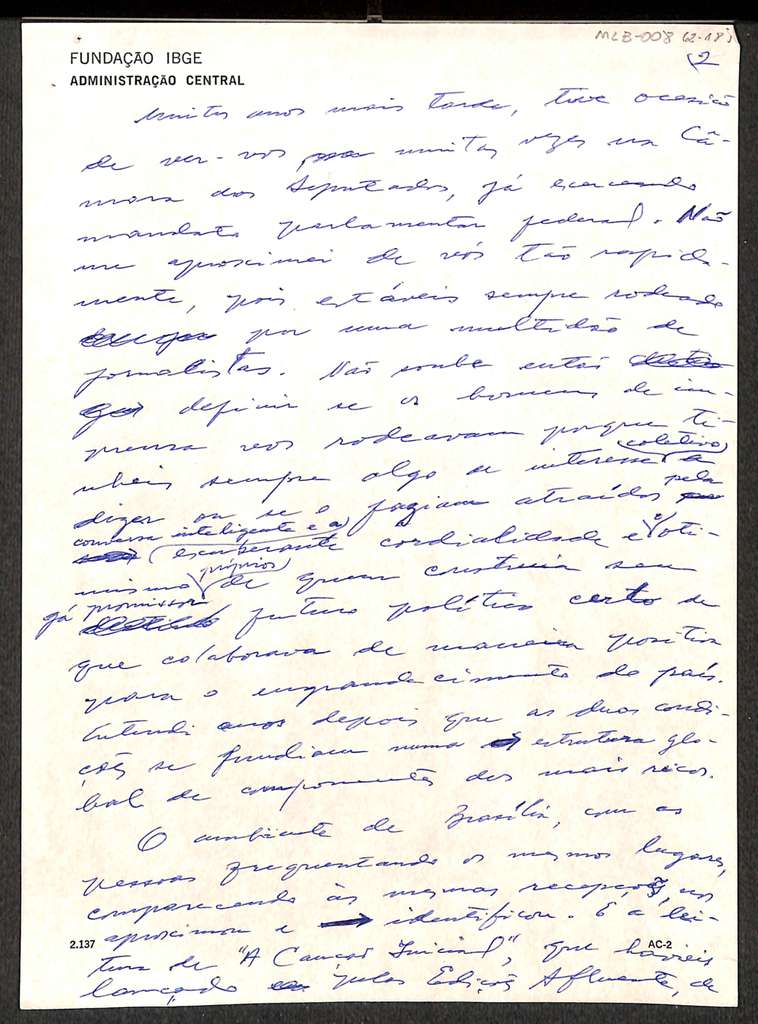 MLB-008 (2-18)
2
FUNDAÇÃO IBGE
ADMINISTRAÇÃO CENTRAL
Muitos anos mais tarde, tive ocasião
de ver-vos muitas vezes na Câ-
mara dos Deputados, já exercendo
mandato parlamentar federal. Não
me aproximei de vós tão rapida-
mente, pois estáveis sempre rodeado
por uma multidão de
jornalistas. Não soube então
definir se os homens de im-
prensa vos rodeavam porque ti-
nheis sempre algo de interesse coletivo a
dizer ou se o faziam atraídos pela
conversa inteligente e a
exuberante cordialidade e o oti-
mismo próprios de quem construia seu
já promissor futuro político certo de
que colaborava de maneira positiva
para o engrandecimento do país.
Entendi anos depois que as duas condi-
ções se fundiam numa estrutura glo-
bal de componentes dos mais ricos.
O ambiente de Brasília, com as
pessoas frequentando os mesmos lugares,
comparecendo às mesmas recepções, nos
aproximou e identificou. E a lei-
2.137 AC-2
tura de "A Canção Inicial", que havieis
lançado pelas Edições Afluente, de